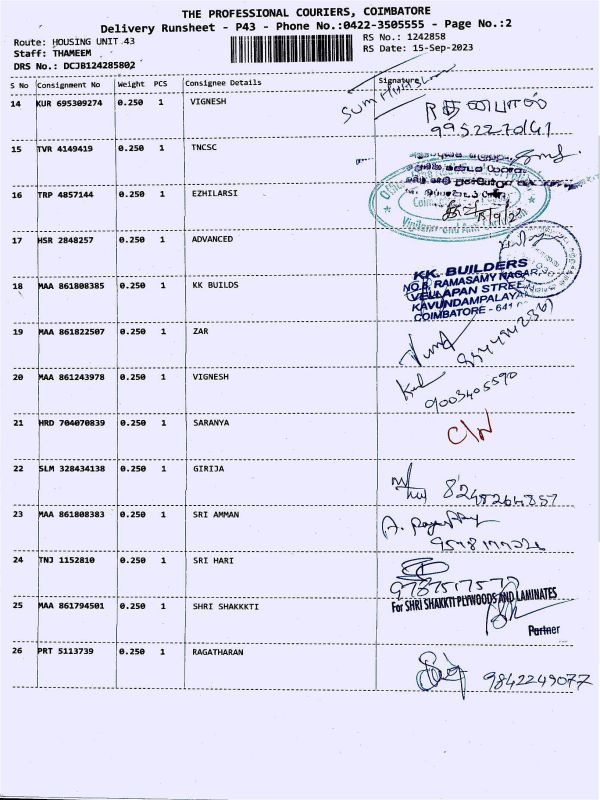 THE PROFESSIONAL COURIERS, COIMBATORE
Delivery Runsheet - P43 - Phone No.:0422-3505555 - Page No.:2
Route: HOUSING UNIT 43
RS No.: 1242858
Staff: THAMEEM
RS Date: 15-Sep-2023
DRS No.: DCJB124285802
S No Consignment No Weight PCS Consignee Details Signature
14 KUR 695309274 0.250 1 VIGNESH
15 TVR 4149419 0.250 1 TNCSC
16 TRP 4857144 0.250 1 EZHILARSI
17 HSR 2848257 0.250 1 ADVANCED
18 MAA 861808385 0.250 1 KK BUILDS
KK. BUILDERS
RAMASAMY NAGAR,
VELLAPAN STREET
KAVUNDAMPALAYA
COIMBATORE - 641
19 MAA 861822507 0.250 1 ZAR
20 MAA 861243978 0.250 1 VIGNESH
9003405590
21 HRD 704070839 0.250 1 SARANYA
C/N
22 SLM 328434138 0.250 1 GIRIJA
8248264857
23 MAA 861808383 0.250 1 SRI AMMAN
24 TNJ 1152810 0.250 1 SRI HARI
25 MAA 861794501 0.250 1 SHRI SHAKKKTI
For SHRI SHAKKTI PLYWOODS AND LAMINATES
Partner
26 PRT 5113739 0.250 1 RAGATHARAN
9842249077